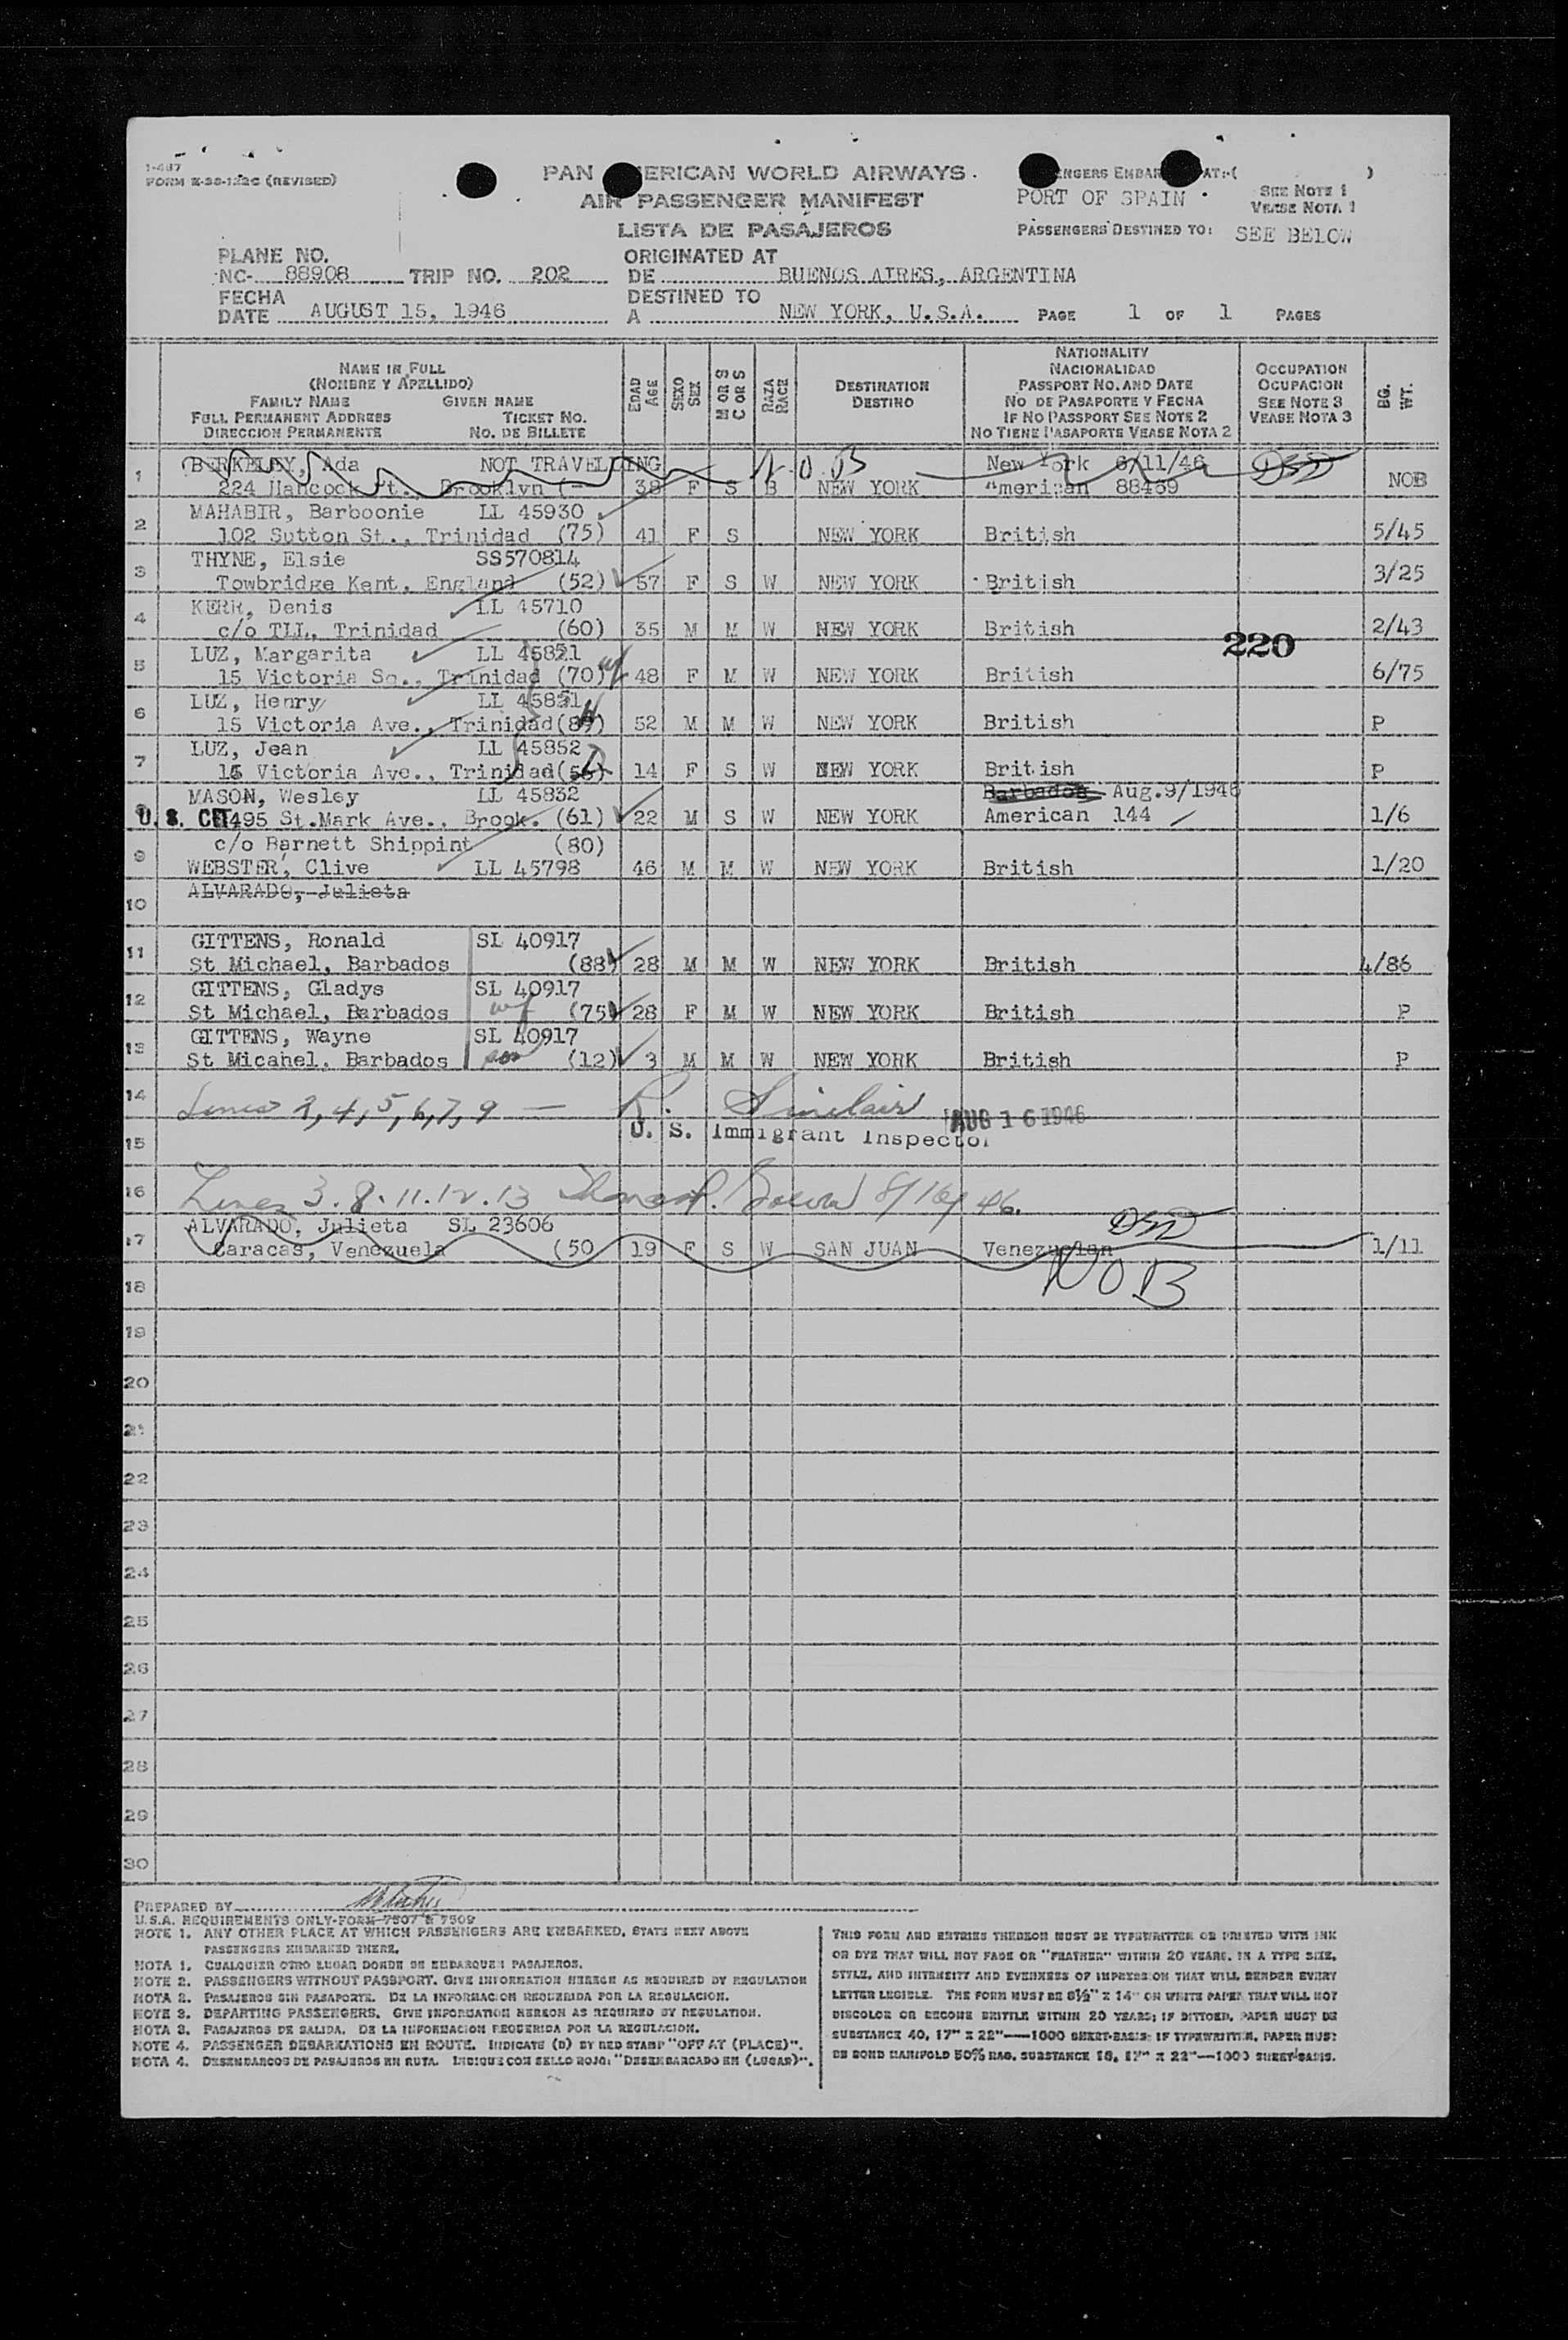 1-487
FORM E-38-122C (REVISED)
PAN AMERICAN WORLD AIRWAYS.
AIR PASSENGER MANIFEST
LISTA DE PASAJEROS
PASSENGERS EMBARKED AT:-( )
PORT OF SPAIN
SEE NOTE 1
VEASE NOTA 1
PASSENGERS DESTINED TO: SEE BELOW
PLANE NO.
NC- 88908 TRIP NO. 202
ORIGINATED AT
DE BUENOS AIRES, ARGENTINA
FECHA
DATE AUGUST 15, 1946
DESTINED TO
A NEW YORK, U.S.A. PAGE 1 OF 1 PAGES
NAME IN FULL
(NOMBRE Y APELLIDO)
FAMILY NAME GIVEN NAME
FULL PERMANENT ADDRESS TICKET NO.
DIRECCION PERMANENTE NO. DE BILLETE
EDAD
AGE
SEXO
SEX
M OR S
C OR S
RAZA
RACE
DESTINATION
DESTINO
NATIONALITY
NACIONALIDAD
PASSPORT NO. AND DATE
NO DE PASAPORTE Y FECHA
IF NO PASSPORT SEE NOTE 2
NO TIENE PASAPORTE VEASE NOTA 2
OCCUPATION
OCUPACION
SEE NOTE 3
VEASE NOTA 3
BG.
WT.
1 BERKELEY, Ada NOT TRAVELLING N.O.B New York 6/11/46
224 Hancock St., Brooklyn (- 38 F S B NEW YORK American 88469 NOB
2 MAHABIR, Barboonie LL 45930
102 Sutton St., Trinidad (75) 41 F S NEW YORK British 5/45
3 THYNE, Elsie SS570814
Towbridge Kent, England (52) 57 F S W NEW YORK British 3/25
4 KERR, Denis LL 45710
c/o TLL, Trinidad (60) 35 M M W NEW YORK British 2/43
220
5 LUZ, Margarita LL 45821
15 Victoria Sq., Trinidad (70) wf 48 F M W NEW YORK British 6/75
6 LUZ, Henry LL 45851
15 Victoria Ave., Trinidad(89) 52 M M W NEW YORK British P
7 LUZ, Jean LL 45852
15 Victoria Ave., Trinidad(56) 14 F S W NEW YORK British P
MASON, Wesley LL 45832 Barbados Aug.9/1946
U. S. CIT 495 St.Mark Ave., Brook. (61) 22 M S W NEW YORK American 144 1/6
9 c/o Barnett Shippint (80)
WEBSTER, Clive LL 45798 46 M M W NEW YORK British 1/20
10 ALVARADO, Julieta
11 GITTENS, Ronald SL 40917
St Michael, Barbados (88) 28 M M W NEW YORK British 4/86
12 GITTENS, Gladys SL 40917
St Michael, Barbados wf (75) 28 F M W NEW YORK British P
13 GITTENS, Wayne SL 40917
St Micahel, Barbados son (12) 3 M M W NEW YORK British P
14 Lines 2, 4, 5, 6, 7, 9 — R. Sinclair AUG 16 1946
15 U. S. Immigrant Inspector
16 Lines 3. 8. 11. 12. 13 8/16/46.
17 ALVARADO, Julieta SL 23606
Caracas, Venezuela (50 19 F S W SAN JUAN Venezuelan 1/11
NOB
18
19
20
21
22
23
24
25
26
27
28
29
30
PREPARED BY
U.S.A. REQUIREMENTS ONLY-FORM 7507 & 7509
NOTE 1. ANY OTHER PLACE AT WHICH PASSENGERS ARE EMBARKED, STATE NEXT ABOVE
PASSENGERS EMBARKED THERE.
NOTA 1. CUALQUIER OTRO LUGAR DONDE SE EMBARQUEN PASAJEROS.
NOTE 2. PASSENGERS WITHOUT PASSPORT. GIVE INFORMATION HEREON AS REQUIRED BY REGULATION
NOTA 2. PASAJEROS SIN PASAPORTE. DE LA INFORMACION REQUERIDA POR LA REGULACION.
NOTE 3. DEPARTING PASSENGERS. GIVE INFORMATION HEREON AS REQUIRED BY REGULATION.
NOTA 3. PASAJEROS DE SALIDA. DE LA INFORMACION REQUERIDA POR LA REGULACION.
NOTE 4. PASSENGER DEBARKATIONS EN ROUTE. INDICATE (D) BY RED STAMP "OFF AT (PLACE)".
NOTA 4. DESEMBARCOS DE PASAJEROS EN RUTA. INDIQUE CON SELLO ROJO: "DESEMBARCADO EN (LUGAR)".
THIS FORM AND ENTRIES THEREON MUST BE TYPEWRITTEN OR PRINTED WITH INK
OR DYE THAT WILL NOT FADE OR "FEATHER" WITHIN 20 YEARS, IN A TYPE SIZE,
STYLE, AND INTENSITY AND EVENNESS OF IMPRESSION THAT WILL RENDER EVERY
LETTER LEGIBLE. THE FORM MUST BE 8½" X 14" ON WHITE PAPER THAT WILL NOT
DISCOLOR OR BECOME BRITTLE WITHIN 20 YEARS; IF DITTOED, PAPER MUST BE
SUBSTANCE 40, 17" X 22"—1000 SHEET-BASIS: IF TYPEWRITTEN, PAPER MUST
BE BOND MANIFOLD 50% RAG, SUBSTANCE 16, 17" X 22"—1000 SHEET BASIS.